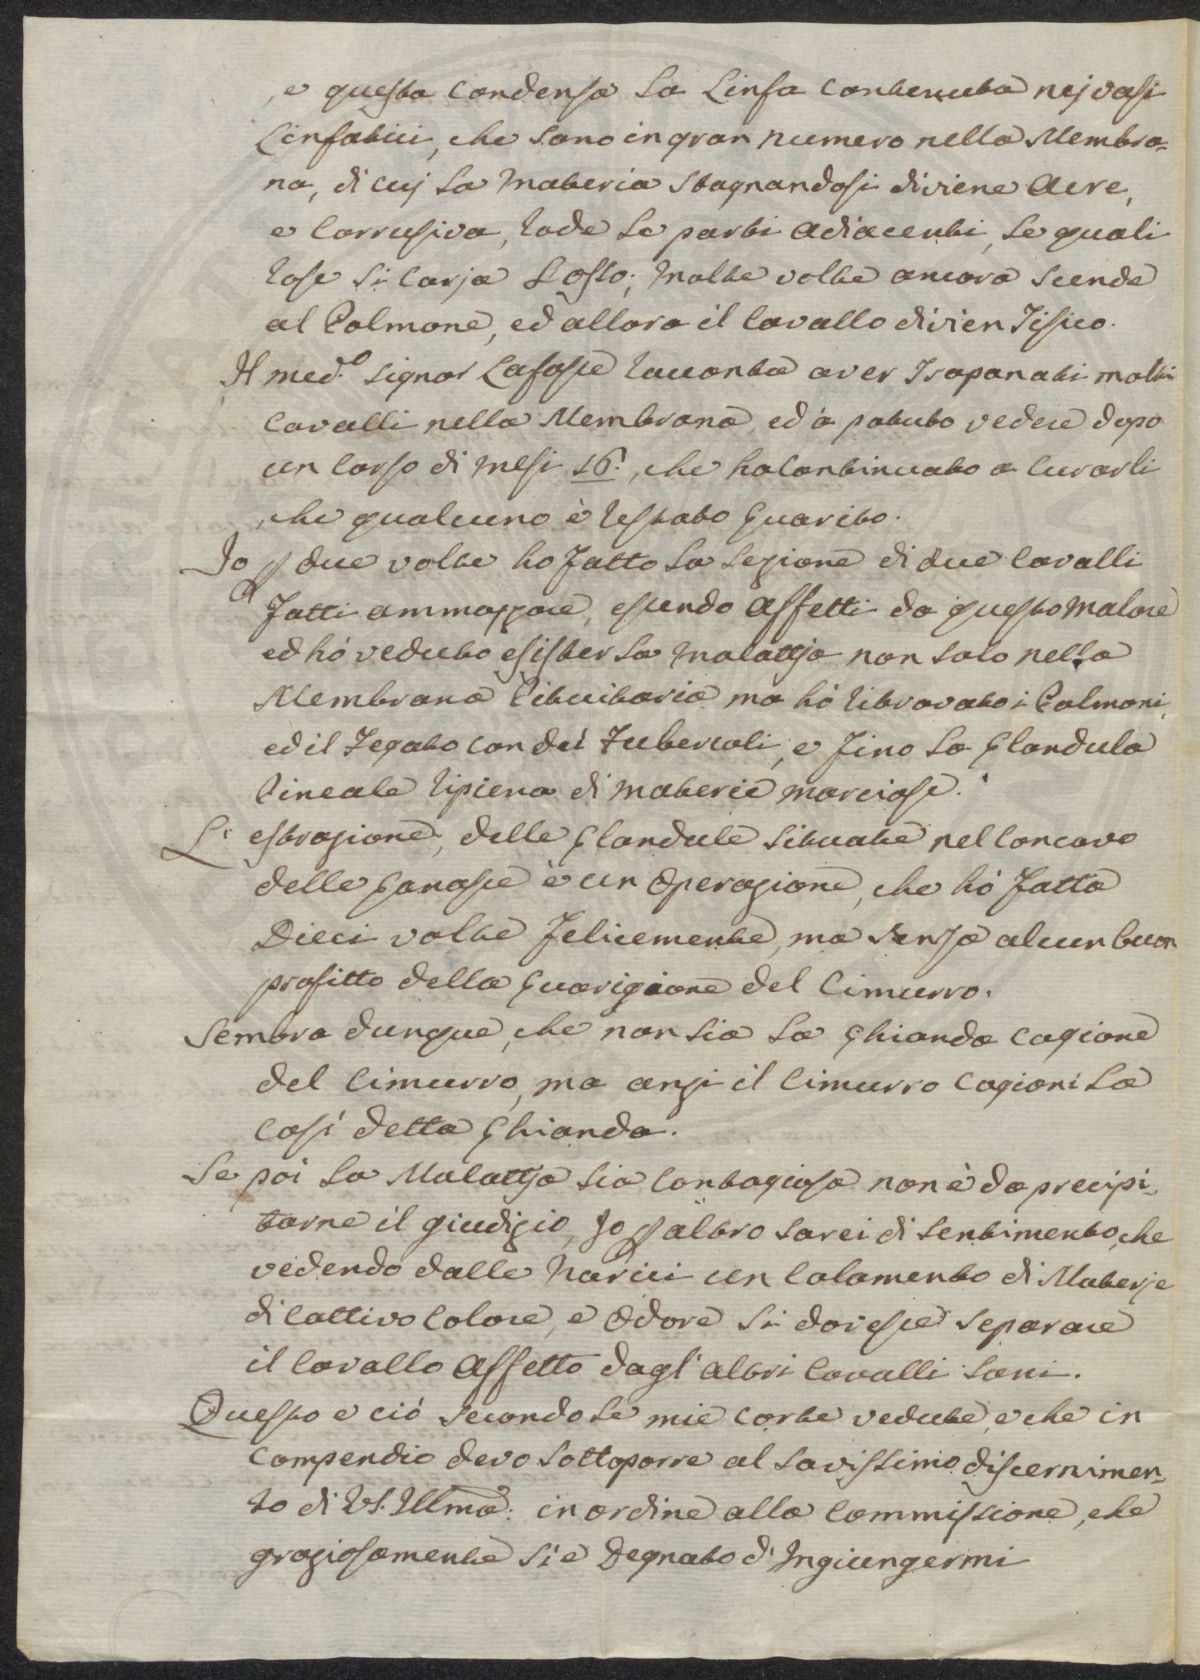 , e questa condensa la Linfa contenuta nej vasi
Linfatici, che sono in gran numero nella Membra=
na, di cuj la materia stagnandosi diviene Acre,
e Corrusiva, rode le parti adiacenti, le quali
rose si carja l'osso; molte volte ancora scende
al Polmone, ed allora il Cavallo divien Tisico.
Il med.º signor Lafosse racconta aver Trapanati molti
Cavalli nella Membrana, ed à potuto vedere dopo
un Corso di mesi 16., che ha continuato a Curarli
, che qualcuno è restato guarito.
Io p due volte ho fatto la sezione di due Cavalli
fatti ammazzare, essendo Affetti da questo malore
ed hò veduto esister la malattja non solo nella
Membrana Pituitaria ma hò ritrovato i Polmoni,
ed il Fegato con dei Tubercoli, e fino la Glandula
Pineale ripiena di materie marciose.
L' estrazione, delle Glandule situate nel Concavo
delle Ganasce è un Operazione, che hò fatta
Dieci volte felicemente, ma senza alcun buon
profitto della Guarigione del Cimurro.
Sembra dunque, che non sia la Ghianda cagione
del Cimurro, ma anzi il Cimurro Cagioni la
Così detta Ghianda.
Se poi la Malattja sia Contagiosa non è da precipi=
tarne il giudizio, Io p altro sarei di sentimento, che
vedendo dalle Narici un Colamento di Materje
di Cattivo Colore, e Odore si dovesse separare
il Cavallo Affetto dagl' altri Cavalli sani.
Questo e ciò secondo le mie corte vedute, e che in
Compendio devo sottoporre al savissimo discernimen=
to di VS. Illma: in ordine alla Commissione, che
graziosamente si è Degnato d' Ingiungermi